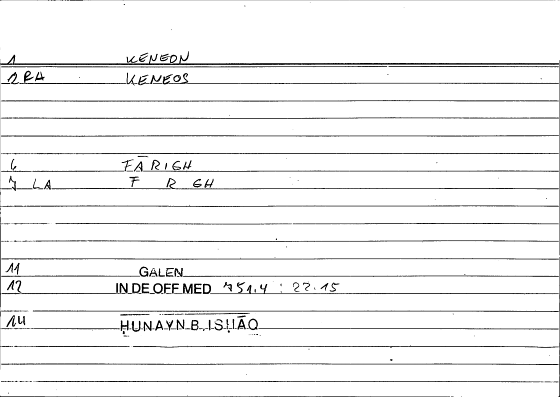 1 KENEON
2 RA KENEOS
6 FĀRIGH
7 LA F R GH
11 GALEN
12 IN DE OFF MED 751.4 : 22.15
14 ḤUNAYN B. ISḤĀQ